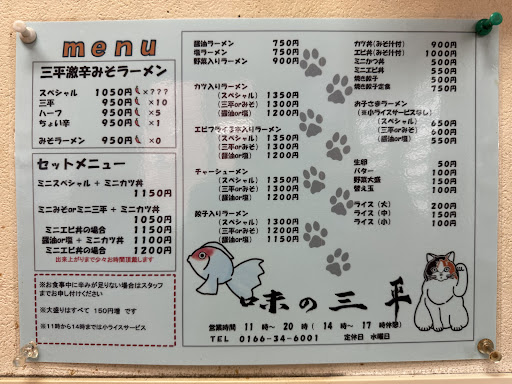 menu
三平激辛みそラーメン
スペシャル 1050円 ×???
三平 950円 ×10
ハーフ 950円 ×5
ちょい辛 950円 ×1
みそラーメン 950円 ×0
セットメニュー
ミニスペシャル + ミニカツ丼
1150円
ミニみそorミニ三平 + ミニカツ丼
1050円
ミニエビ丼の場合 1150円
醤油or塩 + ミニカツ丼 1100円
ミニエビ丼の場合 1200円
出来上がりまで少々お時間頂戴します
※お食事中に辛みが足りない場合はスタッフ
までお申し付けください
※大盛りはすべて 150円増 です
※11時から14時までは小ライスサービス
醤油ラーメン 750円
塩ラーメン 750円
野菜入りラーメン 900円
カツ入りラーメン
(スペシャル) 1350円
(三平orみそ) 1300円
(醤油or塩) 1200円
エビフライ3本入りラーメン
(スペシャル) 1350円
(三平orみそ) 1300円
(醤油or塩) 1200円
チャーシューメン
(スペシャル) 1350円
(三平orみそ) 1300円
(醤油or塩) 1200円
餃子入りラーメン
(スペシャル) 1300円
(三平orみそ) 1250円
(醤油or塩) 1150円
カツ丼(みそ汁付) 900円
エビ丼(みそ汁付) 1000円
ミニカツ丼 500円
ミニエビ丼 550円
焼き餃子 500円
焼き餃子定食 750円
お子さまラーメン
(※小ライスサービスなし)
(スペシャル) 650円
(三平orみそ) 600円
(醤油or塩) 550円
生卵 50円
バター 100円
野菜大盛 150円
替え玉 100円
ライス(大) 200円
ライス(中) 150円
ライス(小) 100円
味の三平
営業時間 11時~20時(14時~17時休憩)
TEL 0166-34-6001 定休日 水曜日